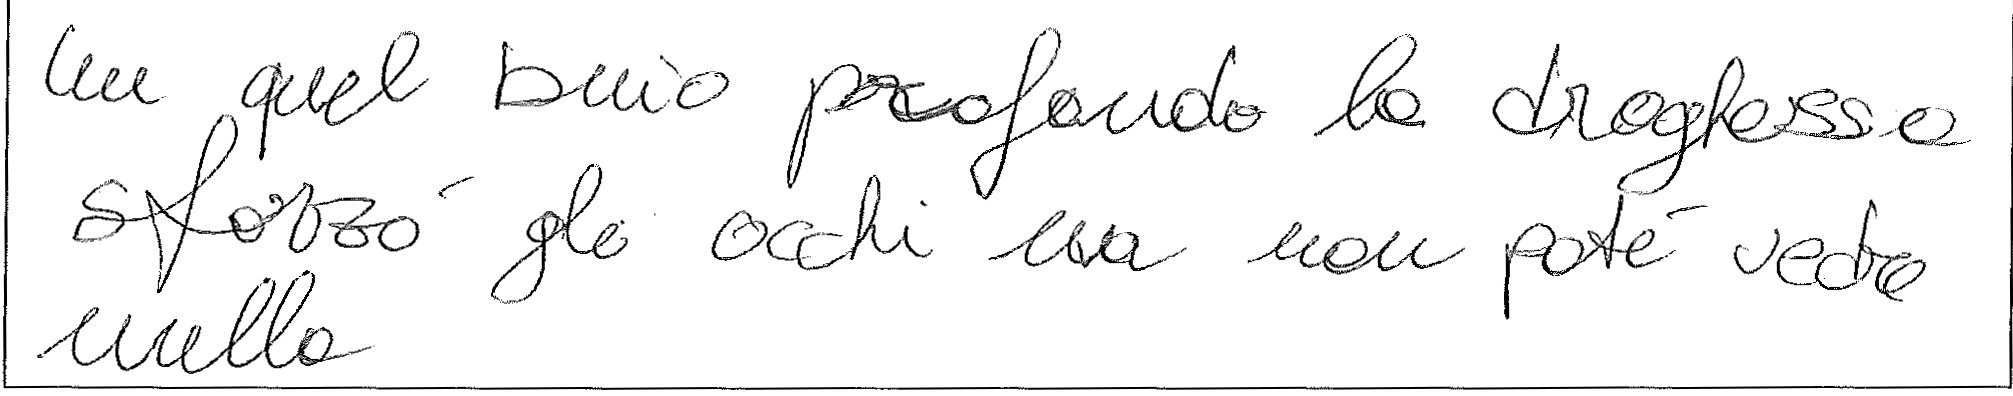 In quel buio profondo la droghessa
sforzó gli occhi ma non poté vedre
nulla